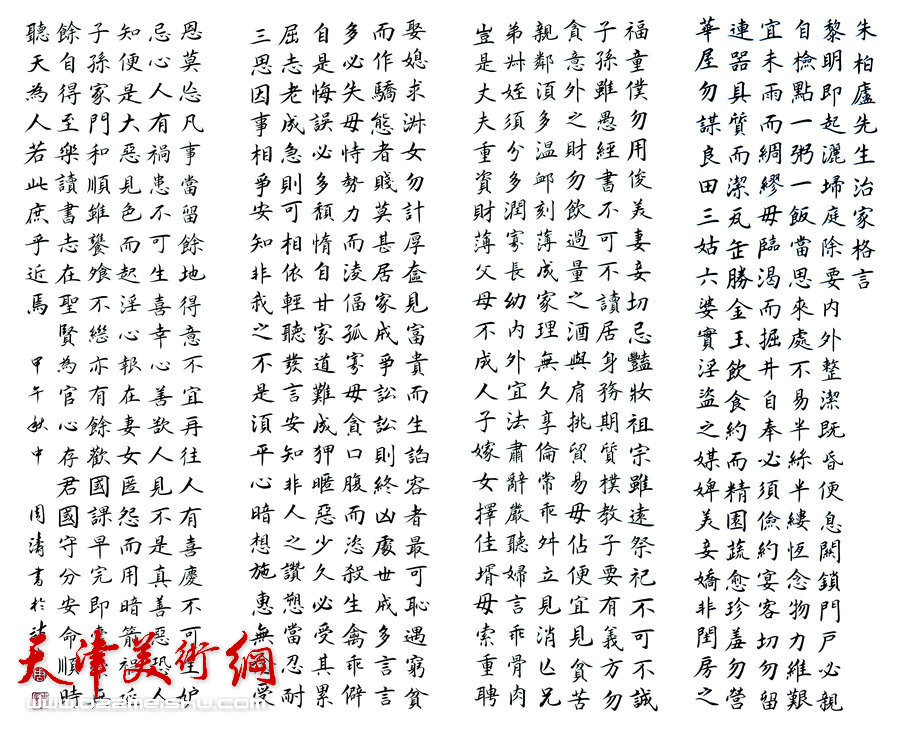 朱柏廬先生治家格言
黎明即起灑埽庭除要內外整潔既昏便息闗鎖門戶必親
自檢點一粥一飯當思來處不易半絲半縷恆念物力維艱
宜未雨而綢繆毋臨渴而掘井自奉必須儉約宴客切勿留
連器具質而潔瓦缶勝金玉飲食約而精園蔬愈珍羞勿營
華屋勿謀良田三姑六婆實淫盜之媒婢美妾嬌非閨房之
福童僕勿用俊美妻妾切忌豔妝祖宗雖遠祭祀不可不誠
子孫雖愚經書不可不讀居身務期質樸教子要有義方勿
貪意外之財勿飲過量之酒與肩挑貿易毋佔便宜見貧苦
親鄰須多温卹刻薄成家理無久享倫常乖舛立見消亾兄
弟叔姪須分多潤寡長幼內外宜法肅辭嚴聽婦言乖骨肉
豈是丈夫重資財薄父母不成人子嫁女擇佳壻毋索重聘
娶媳求淑女勿計厚奩見富貴而生諂容者最可恥遇窮貧
而作驕態者賤莫甚居家戒爭訟訟則終凶處世戒多言言
多必失毋恃勢力而淩偪孤寡毋貪口腹而恣殺生禽乖僻
自是悔誤必多頹惰自甘家道難成狎暱惡少久必受其累
屈志老成急則可相依輕聽發言安知非人之譖愬當忍耐
三思因事相爭安知非我之不是須平心暗想施惠無受
恩莫忘凡事當留餘地得意不宜再往人有喜慶不可生妒
忌心人有禍患不可生喜幸心善欲人見不是真善惡恐人
知便是大惡見色而起淫心報在妻女匿怨而用暗箭禍延
子孫家門和順雖饔飧不繼亦有餘歡國課早完即
餘自得至樂讀書志在聖賢為官心存君國守分安命順時
聽天為人若此庶乎近焉 甲午秋中 周濤書於
天津美術網
www.022meishu.com